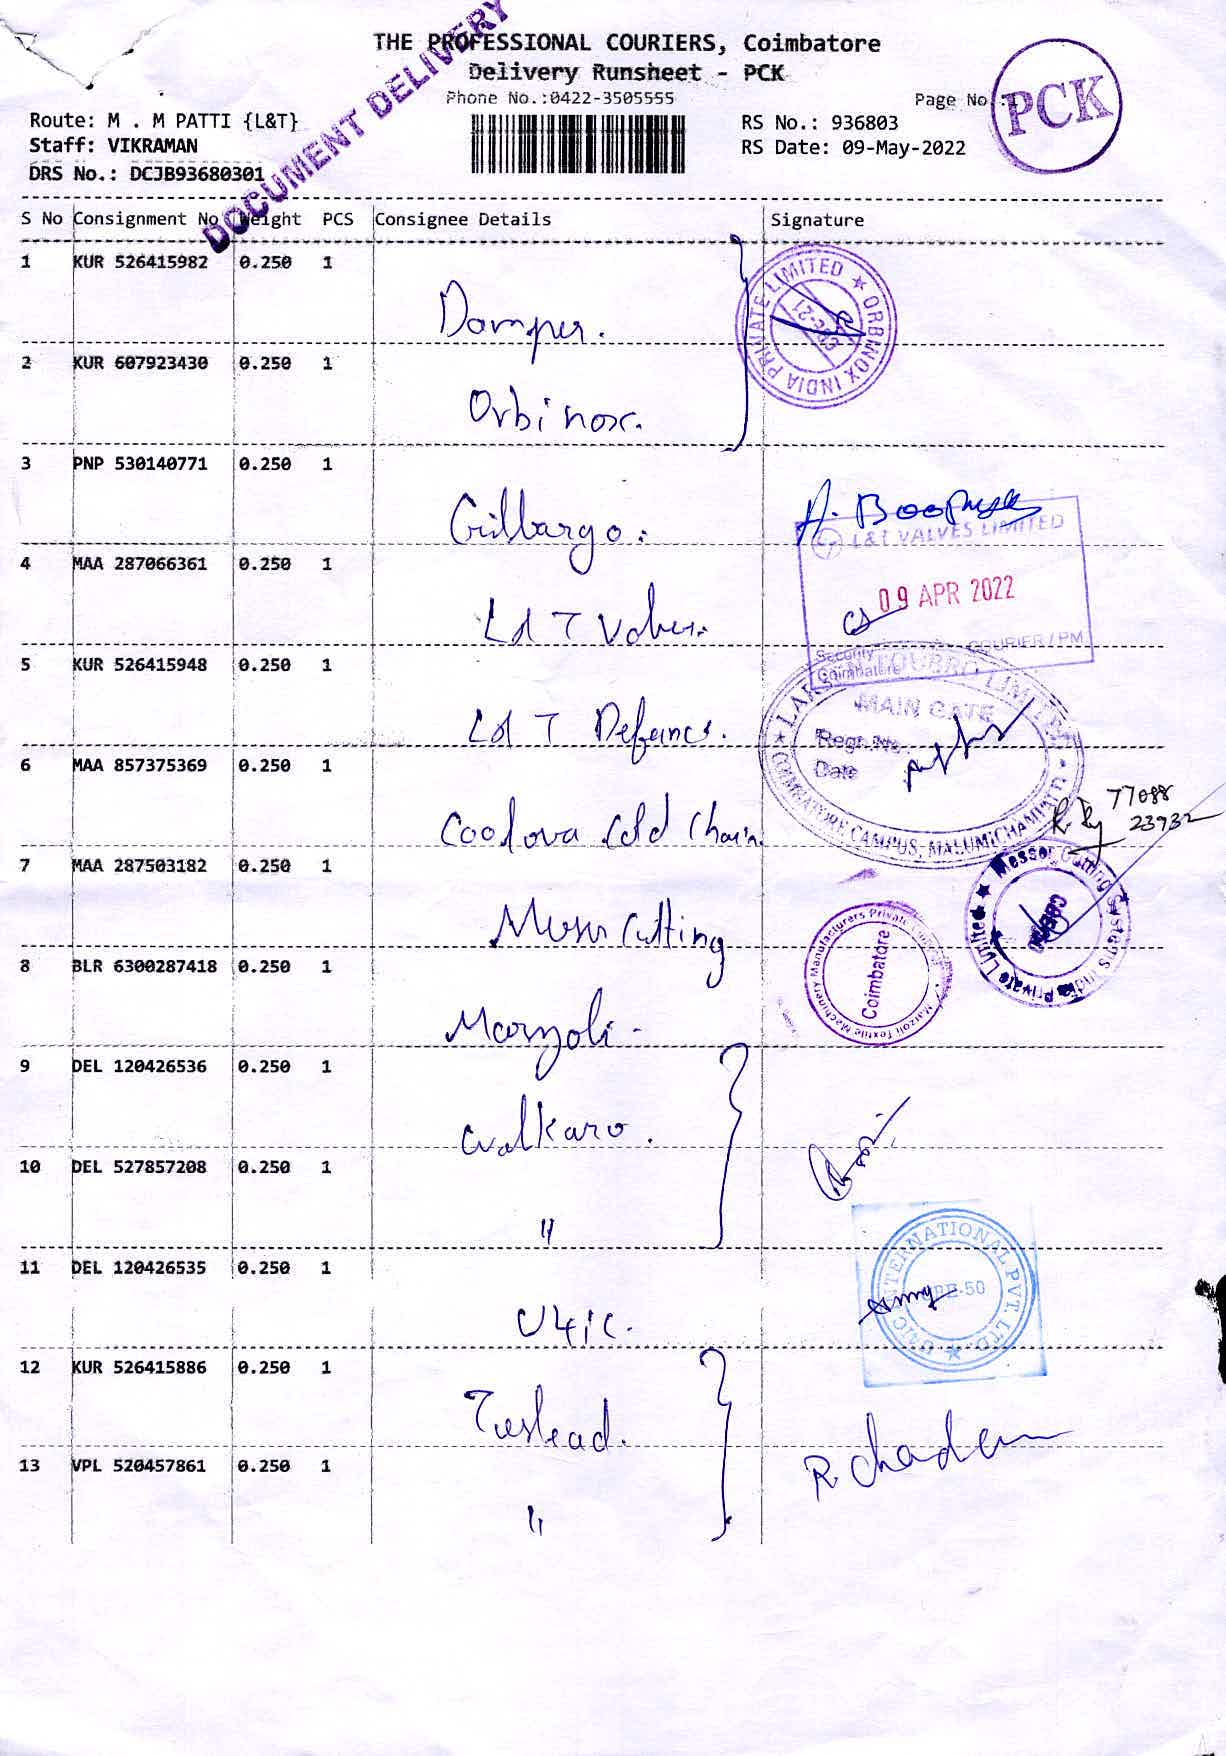 THE PROFESSIONAL COURIERS, Coimbatore
DOCUMENT DELIVERY
Delivery Runsheet - PCK
Phone No.:0422-3505555
Page No.:
PCK
Route: M . M PATTI {L&T}
RS No.: 936803
Staff: VIKRAMAN
RS Date: 09-May-2022
DRS No.: DCJB93680301
S No Consignment No Weight PCS Consignee Details Signature
1 KUR 526415982 0.250 1
Damper.
ORBINOX INDIA PRIVATE LIMITED
2 KUR 607923430 0.250 1
Orbinox.
3 PNP 530140771 0.250 1
Gilbargo.
L&T VALVES LIMITED
4 MAA 287066361 0.250 1
09 APR 2022
L&T Valves.
Security COURIER / PM
Coimbatore
5 KUR 526415948 0.250 1
LARSEN & TOUBRO LIMITED
MAIN GATE
Regr. No.
Date
COIMBATORE CAMPUS, MALUMICHAMPATTI
L&T Defence.
6 MAA 857375369 0.250 1
77088
23932
Coolova Cold Chain.
7 MAA 287503182 0.250 1
Messer Cutting Systems India Private Limited
Messer Cutting
8 BLR 6300287418 0.250 1
Marzoli Textile Machinery Manufacturers Private Limited
Coimbatore
Marzoli -
9 DEL 120426536 0.250 1
Walkaro.
10 DEL 527857208 0.250 1
"
11 DEL 120426535 0.250 1
U4IC INTERNATIONAL PVT. LTD.
CBE-50
U4ic.
12 KUR 526415886 0.250 1
13 VPL 520457861 0.250 1
"